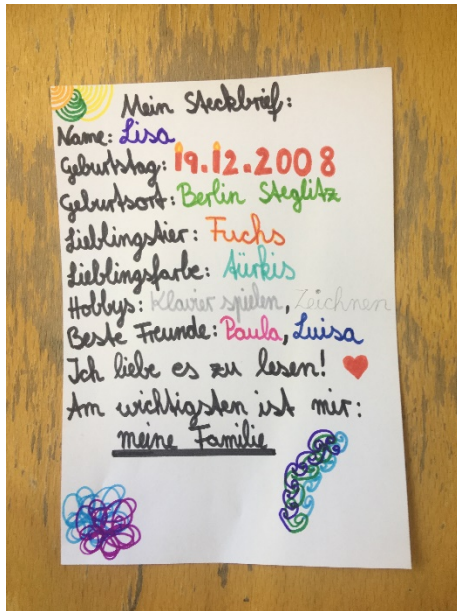 Mein Steckbrief:
Name: Lisa
Geburtstag: 19.12.2008
Geburtsort: Berlin Steglitz
Lieblingstier: Fuchs
Lieblingsfarbe: türkis
Hobbys: Klavier spielen, Zeichnen
Beste Freunde: Paula, Luisa
Ich liebe es zu lesen!
Am wichtigsten ist mir:
meine Familie